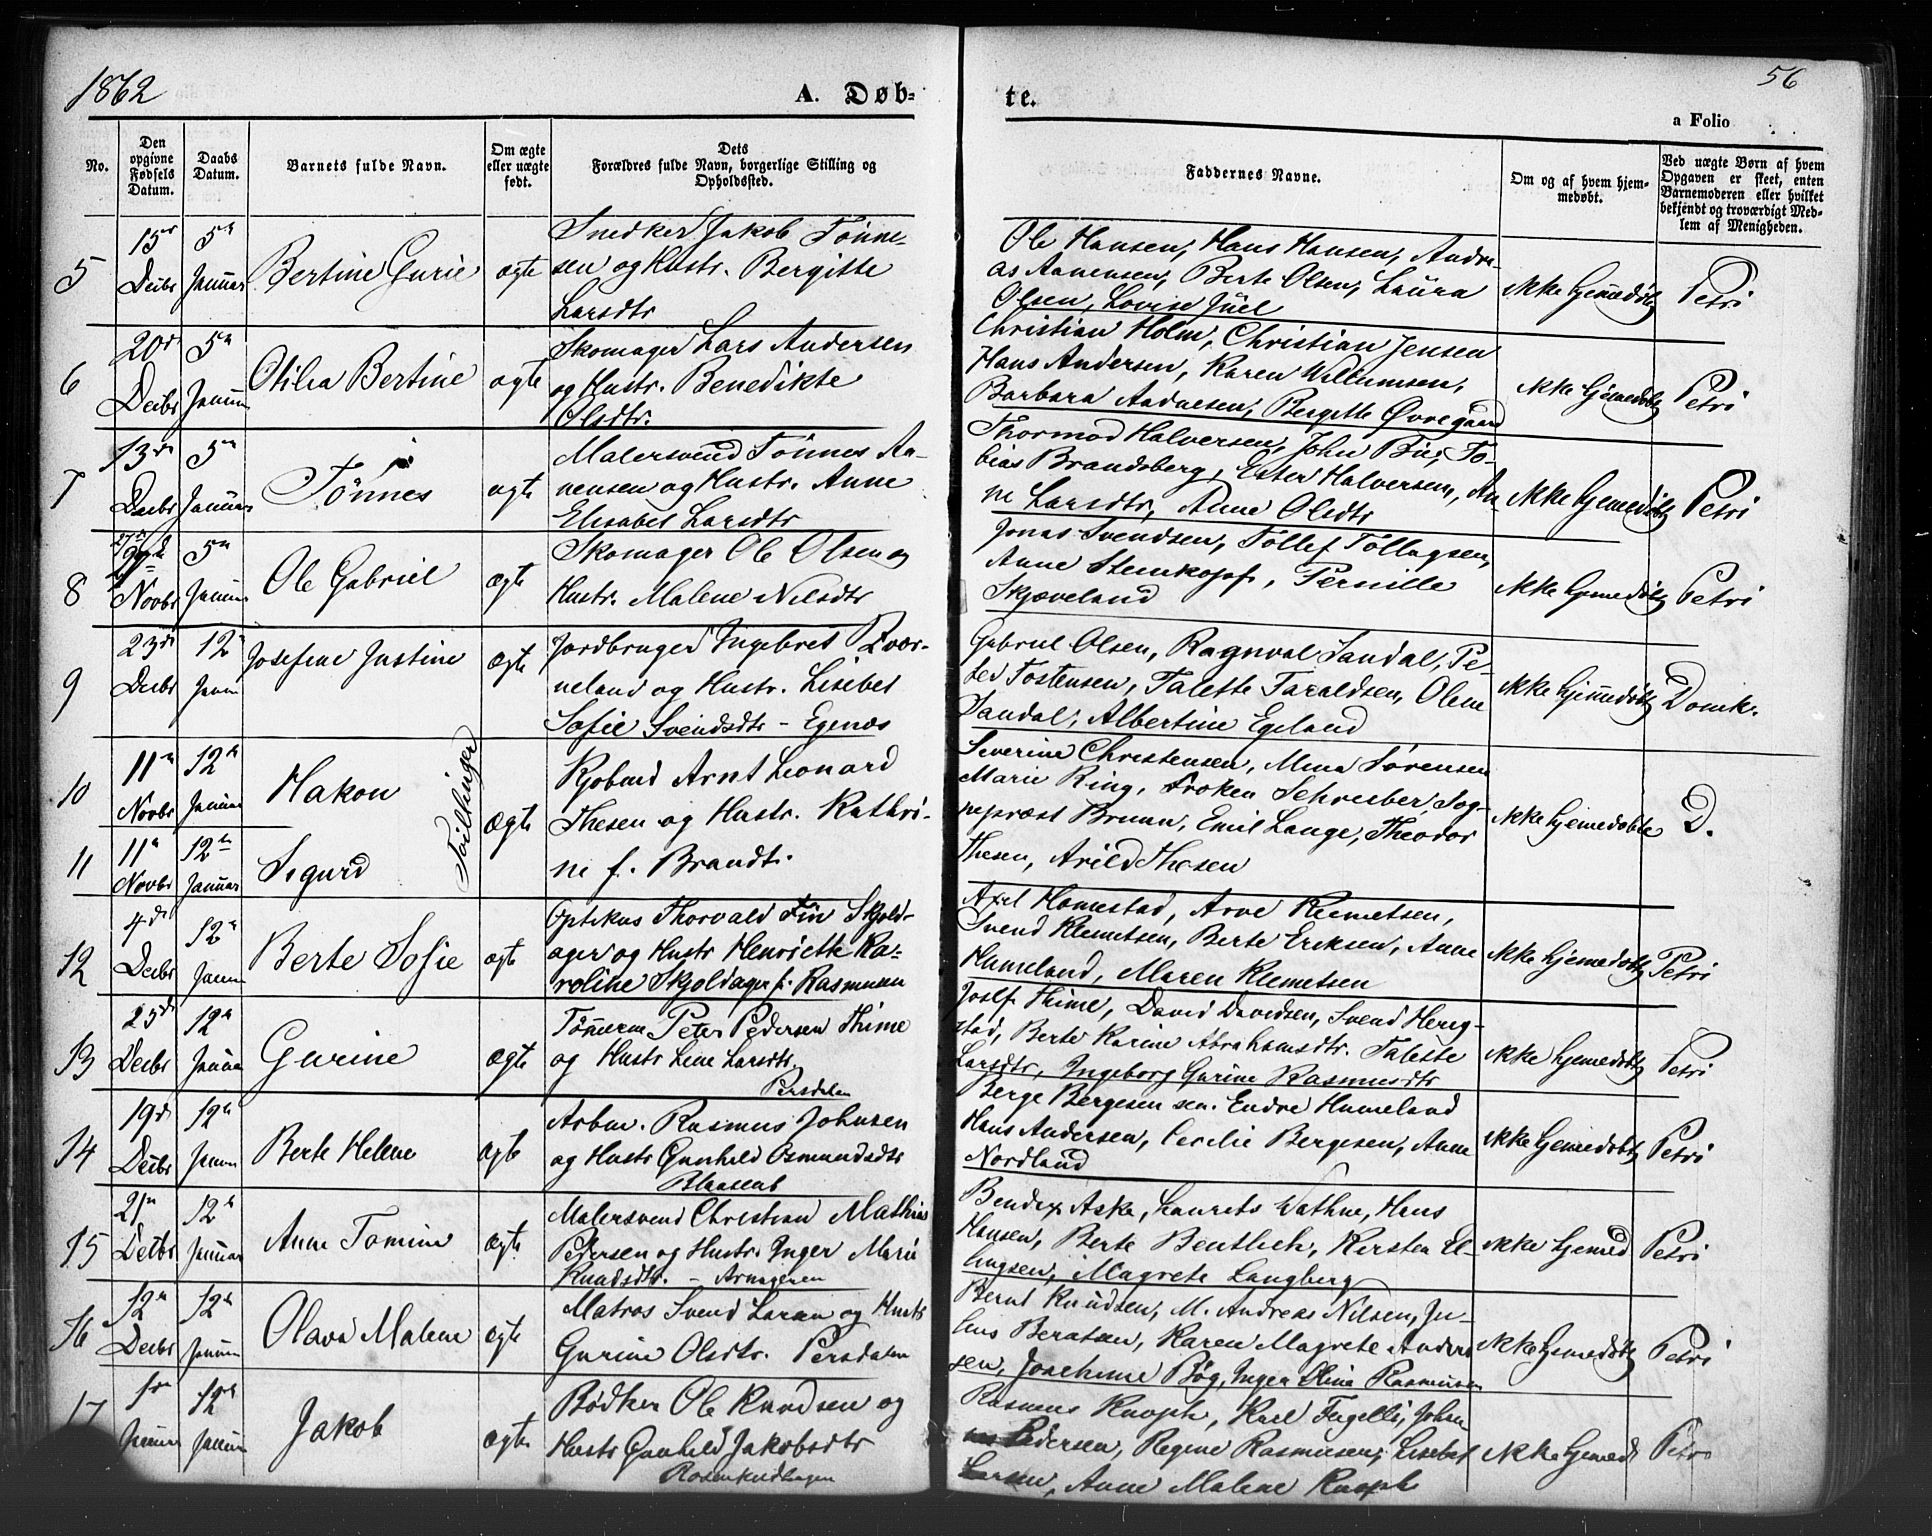 1862
A. Døb=
te.
56
a Folio
No.
Den opgivne Fødsels Datum.
Daabs Datum.
Barnets fulde Navn.
Om ægte eller uægte født.
Dets Forældres fulde Navn, borgerlige Stilling og Opholdssted.
Faddernes Navne.
Om og af hvem hjemmedøbt.
Ved uægte Børn af hvem Opgaven er skeet, enten Barnemoderen eller hvilket bekjendt og troværdigt Medlem af Menigheden.
5
15de Decbr
5te Januar
Bertine Gurie
ægte
Snedker Jakob Tønne-
sen og Hustr. Bergitte
Larsdtr
Ole Hansen, Hans Hansen, Andre-
as Aanensen, Berte Olsen, Laura
Olsen, Lovise Juel
ikke hjemmedøbt
Petri
6
20de Decbr
5te Januar
Otilia Bertine
ægte
Skomager Lars Andersen
og Hustr. Benedikte
Olsdtr.
Christian Holm, Christian Jensen
Hans Andersen, Karen Willumsen,
Barbara Aadnesen, Bergitte Øvregaard
ikke hjemedøbt
Petri
7
13de Decbr
5te Januar
Tönnes
ægte
Malersvend Tönnes Aa-
nensen og Hustr. Anne
Elisabet Larsdtr
Thormod Halversen, John Bøe, To-
bias Brandsberg, Ester Halversen, An
ne Larsdtr, Anne Olsdtr
ikke hjemedøbt
Petri
8
Novbr
5te Januar
Ole Gabriel
ægte
Skomager Ole Olsen og
Hustr. Malene Nilsdtr
Jonas Svendsen, Tollef Tollagsen,
Anne Stenkopf, Pernille
Skjæveland
ikke hjemedøbt
Petri
9
23de Decbr
12te Janr
Josefine Justine
ægte
Jordbruger Ingebret Kvær-
neland og Hustr. Lisebet
Sofie Svendsdtr - Egenæs
Gabriel Olsen, Ragnval Sandal, Pe-
ter Tostensen, Talette Taraldsen, Olene
Sandal, Albertine Egeland
ikke hjemmedøbt
Domk.
10
11te Novbr
12te Januar
Hakon
Tvillinger
ægte
Kjøbmd Arnt Leonard
Thesen og Hustr. Kathri-
ne f. Brandt.
Severine Christensen, Mina Sørensen
Marie Ring, Frøken Schreiber, Sog-
nepræst Bruun, Emil Lange, Theodor
Thesen, Arild Thesen
ikke hjemedøbte
D.
11
11te Novbr
12te Januar
Sigurd
12
4de Decbr
12te Janr
Berte Sofie
ægte
Optikus Thorvald Fin Skjold-
ager og Hustr Henriette Ka-
roline Skjoldager f. Rasmusen
Axel Homestad, Arve Klemetsen,
Svend Klemetsen, Berte Eriksen, Anne
Humeland, Maren Klemetsen
ikke hjemedøbt
Petri
13
25de Decbr
12te Januar
Gurine
ægte
Tömerm Peter Pedersen Thime
og Hustr Lene Larsdtr.
Persdalen
Josef Thime, David Davidsen, Svend Herig-
stad, Berte Karine Abrahamsdtr. Talette
Larsdtr, Ingeborg Gurine Rasmusdtr
ikke hjemedøbt
Petri
14
19de Decbr
12te Janr
Berte Helene
ægte
Arbm. Rasmus Johnsen
og Hustr Gunhild Osmundsdtr
Blaasenb
Berge Bergesen sen. Endre Humeland
Hans Andersen, Cecilie Bergesen, Anne
Nordland
ikke hjemedøbt
Petri
15
21de Decbr
12te Januar
Anne Tomine
ægte
Malersvend Christian Mathias
Pedersen og Hustr. Inger Marie
Knudsdtr. - Arnageren
Bendix Aske, Laurits Wathne, Hans
Hansen, Berte Bentlich, Kirsten El-
lingsen, Magrete Langberg
ikke hjemed
Petri
16
12te Decbr
12te Januar
Olava Malene
ægte
Matros Svend Larsen og Hustr
Gurine Olsdtr. Persdalen
Bernt Knudsen, M. Andreas Nilsen, Ju-
lius Berntsen, Karen Magrete Ander
sen, Joachime Bøg, Inger Elina Rasmusen
ikke hjemedøbt
Petri
17
1ste Januar
12te Januar
Jakob
ægte
Bødker Ole Knudsen og
Hustr Gunhild Jakobsdtr
Rosenkildhagen
Rasmus Knoph, Karl Fugelli, Johan
Pedersen, Regine Rasmusen, Lisebet
Larsen, Anne Malene Knoph
ikke hjemed
Petri